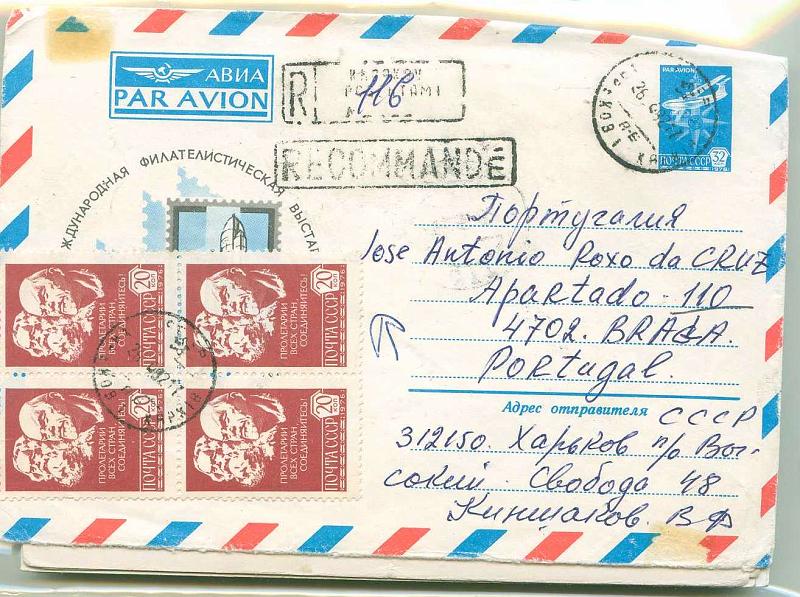 АВИА
PAR AVION
R
116
RECOMMANDÉ
PAR AVION
ПОЧТА СССР 32
1978
ЖДУНАРОДНАЯ ФИЛАТЕЛИСТИЧЕСКАЯ ВЫСТАВ
Португалия
Jose Antonio Roxo da CRUZ
Apartado-110
4702. BRAGA.
Portugal.
Адрес отправителя
СССР
312150. Харьков п/о Выс-
сокий. Свобода 48
Киншаков. В Ф
ПРОЛЕТАРИИ
ВСЕХ СТРАН
СОЕДИНЯЙТЕСЬ!
ПОЧТА СССР
1976
20 КОП
ПРОЛЕТАРИИ
ВСЕХ СТРАН
СОЕДИНЯЙТЕСЬ!
ПОЧТА СССР
1976
20 КОП
ПРОЛЕТАРИИ
ВСЕХ СТРАН
СОЕДИНЯЙТЕСЬ!
ПОЧТА СССР
1976
20 КОП
ПРОЛЕТАРИИ
ВСЕХ СТРАН
СОЕДИНЯЙТЕСЬ!
ПОЧТА СССР
1976
20 КОП